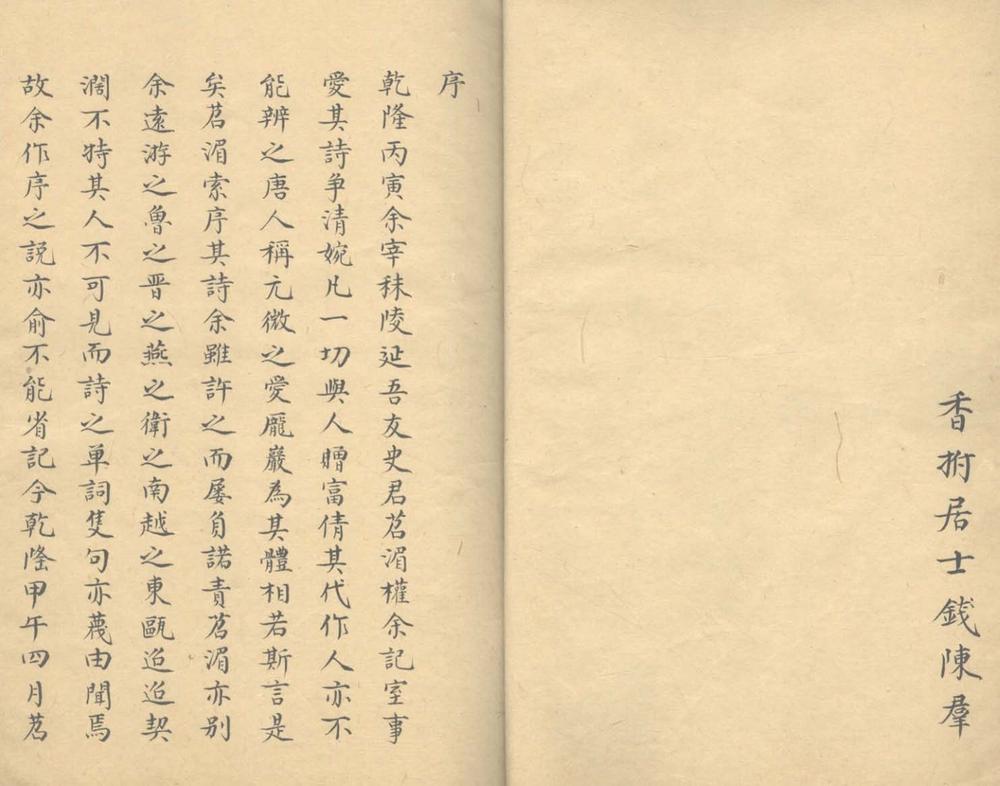 香樹居士錢陳羣
序
乾隆丙寅余宰秣陵延吾友史君茗湄權余記室事
愛其詩爭清婉凡一切與人贈富倩其代作人亦不
能辨之唐人稱元微之愛龎巖為其體相若斯言是
矣茗湄索序其詩余雖許之而屡負諾責茗湄亦别
余遠游之魯之晋之燕之衛之南越之東甌迢迢契
濶不特其人不可見而詩之单詞隻句亦蔑由聞焉
故余作序之説亦俞不能省記今乾隆甲午四月茗